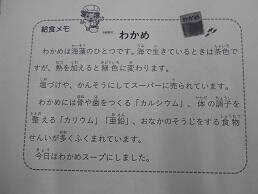 給食メモ
わかめ
わかめ
わかめは海藻のひとつです。海で生きているときは茶色で
すが、熱を加えると緑色に変わります。
塩づけや、かんそうにしてスーパーに売られています。
わかめには骨や歯をつくる「カルシウム」、体の調子を
整える「カリウム」「亜鉛」、おなかのそうじをする食物
せんいが多くふくまれています。
今日はわかめスープにしました。